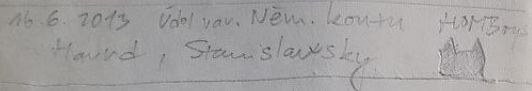 16.6.2013 Údol var. Něm. kontu
Havrd, Stanislavsky